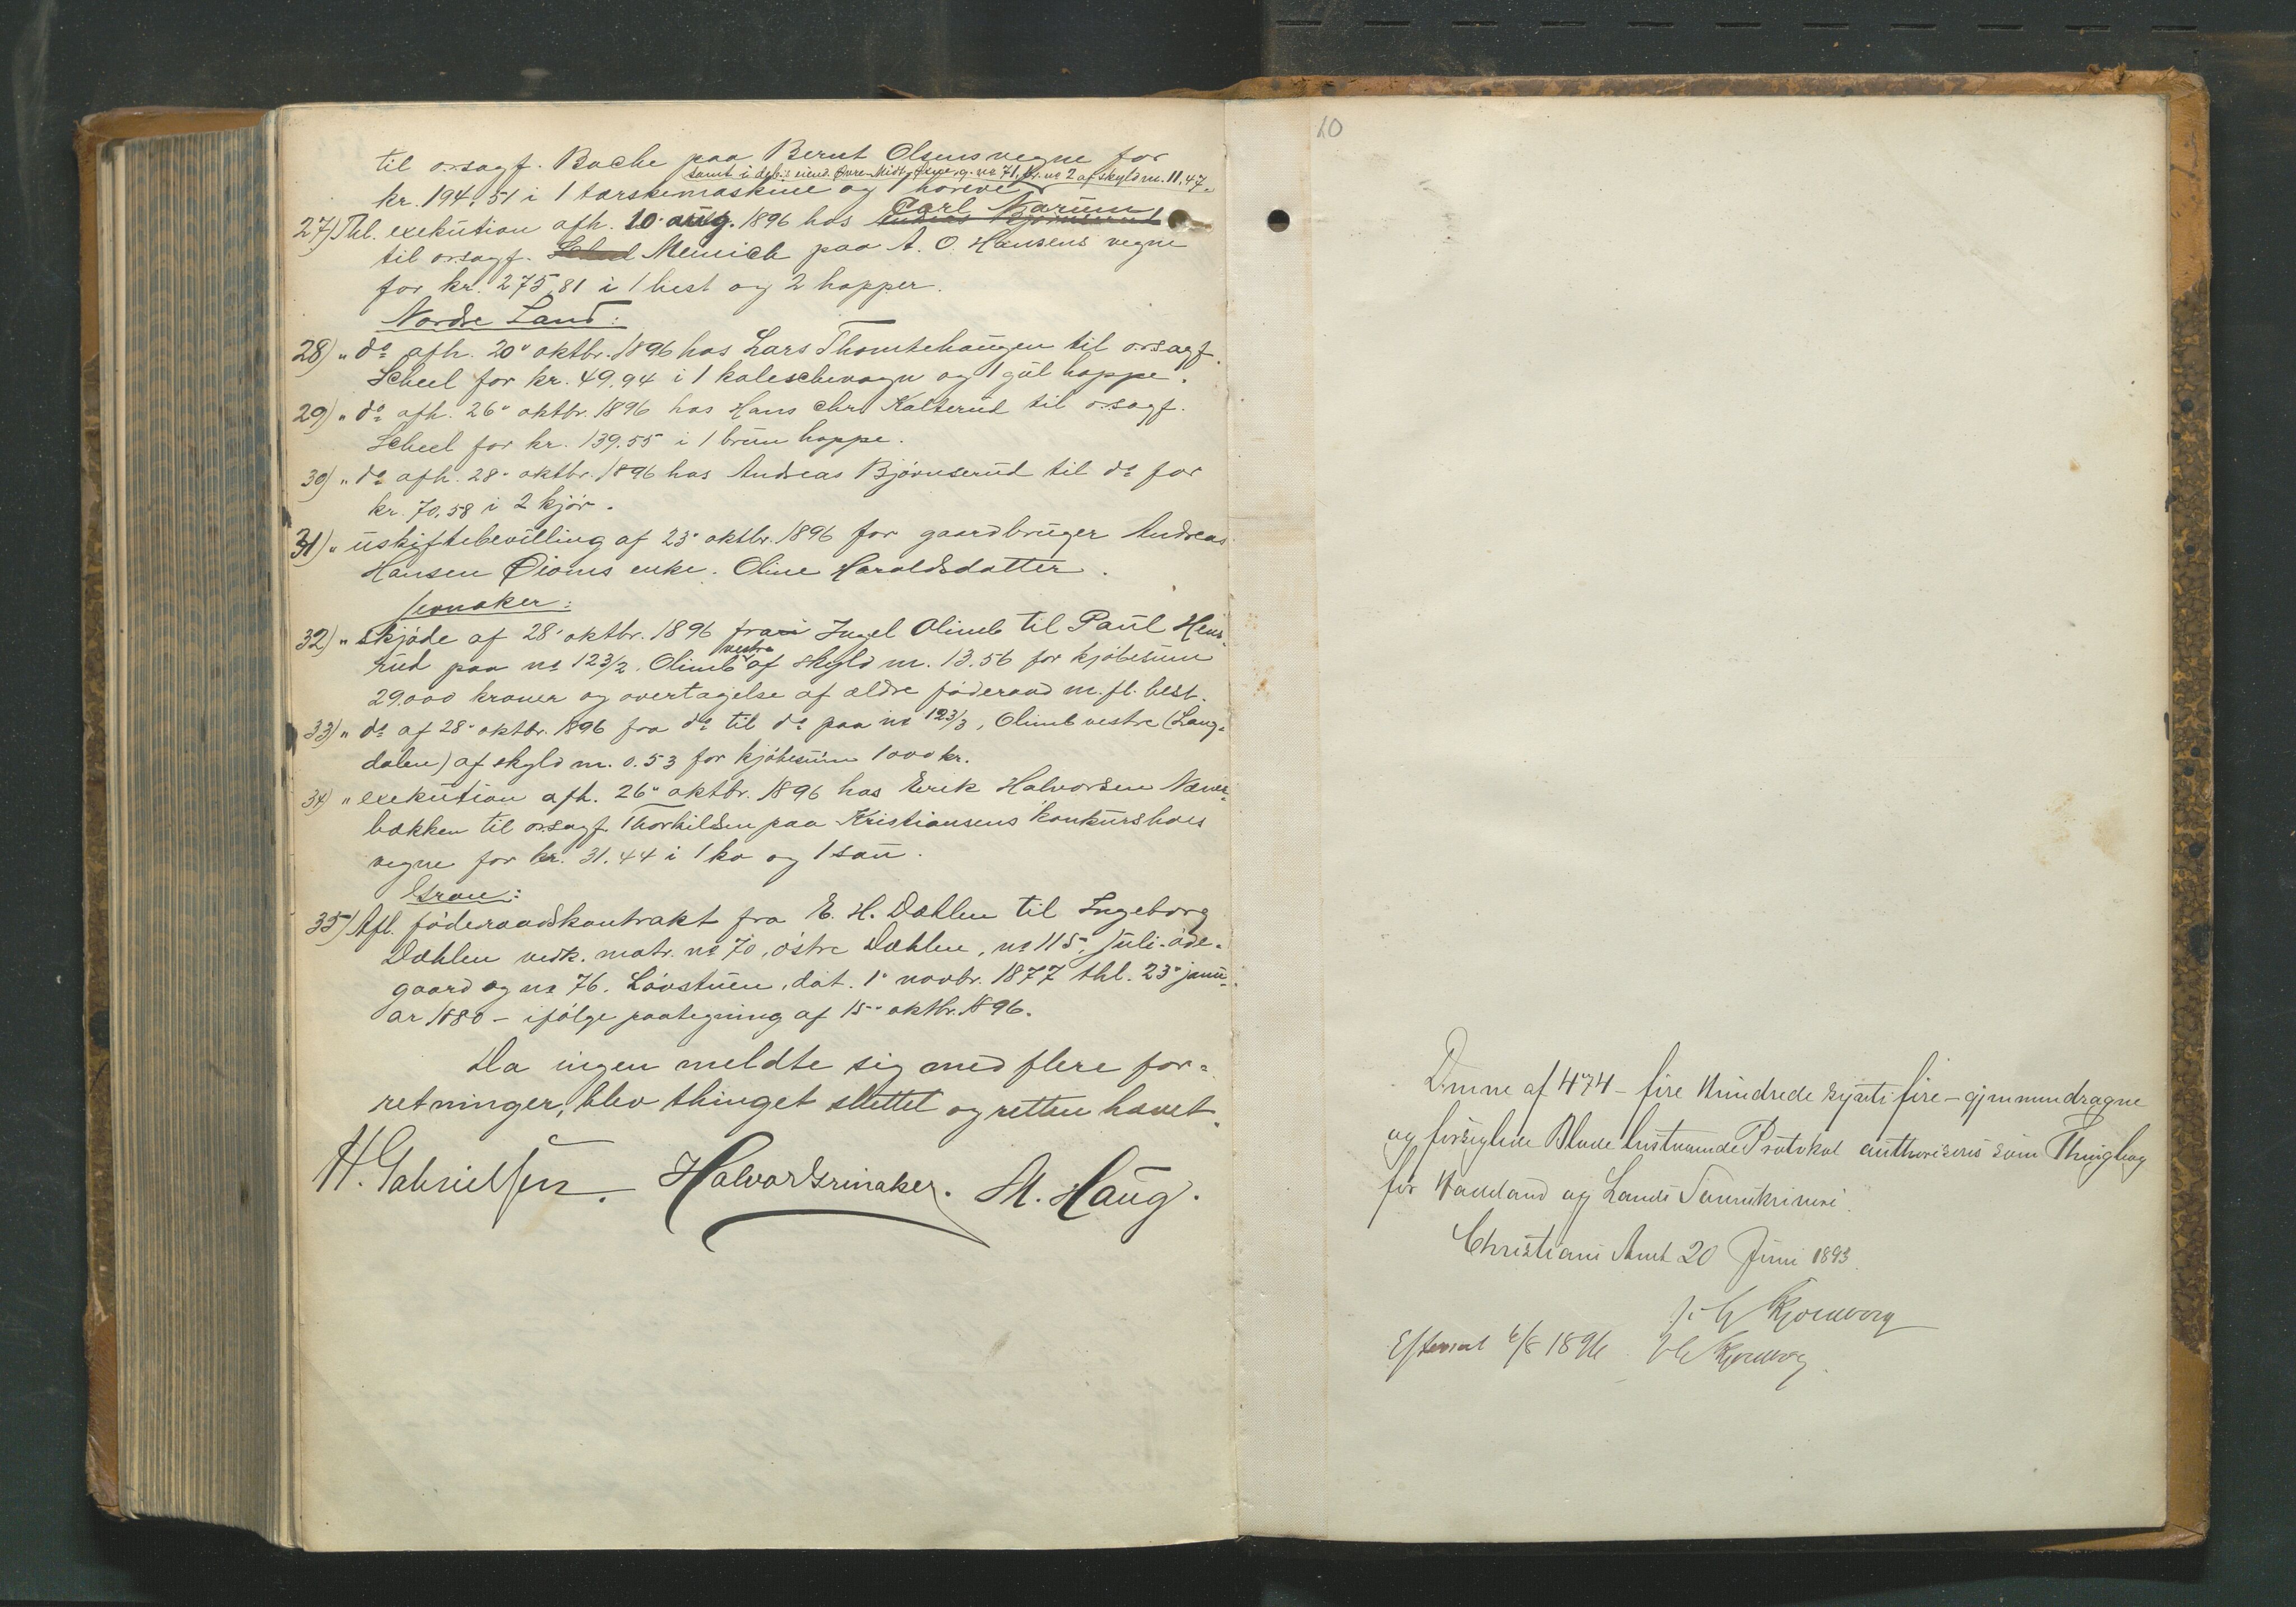 til o.r.sagf. Bache paa Bernt Olsens vegne for
samt i deb.s eiend. Øvre-Midt- g. no 71, br. no 2 af skyld m. 11,47.
kr. 194.51 i 1 tærskemaskine og 1 horeve
Carl Narum
27) Thl. exekution afh. 10. aug. 1896 hos Andreas Bjørnserud
til o.r.sagf. Scheel Meinich paa A. O. Hansens vegne
for kr. 275,81 i 1 hest og 2 hopper.
Nordre Land:
28) " do afh. 20" oktbr. 1896 hos Lars Thomtehaugen til o.r.sagf.
Scheel for kr. 49,94 i 1 kaleschevogn og 1 gul hoppe.
29) " do afh. 26" oktbr. 1896 hos Hans Chr. Kalterud til o.r.sagf.
Scheel for kr. 139.55 i 1 brun hoppe.
30) " do afh. 28" oktbr. 1896 hos Andreas Bjørnserud til do for
kr. 70,58 i 2 kjør.
31) " uskiftebevilling af 23" oktbr. 1896 for gaardbruger Andreas
Hansen Øioms enke. Oline Haraldsdatter.
Jevnaker:
32) " skjøde af 28" oktbr. 1896 fra Ingel Olimb til Paul Hens-
vestre
rud paa no 123/2. Olimb af skyld m. 13.56 for kjøbesum
29.000 kroner og overtagelse af ældre føderaad m. fl. best.
33) " do af 28" oktbr. 1896 fra do til do paa no 123/3, Olimb vestre (Lang-
dalen) af skyld m. 0.53 for kjøbesum 1000 kr.
34) " exekution afh. 26" oktbr. 1896 hos Erik Halvorsen Næver-
bækken til o.r.sagf. Thorkildsen paa Kristiansens konkursboes
vegne for kr. 31.44 i 1 ko og 1 sau.
Gran:
35) Afl. føderaadskontrakt fra E. H. Dæhlen til Ingeborg
Dæhlen vedk. matr. no 70, østre Dæhlen, no 115, Juli-øde-
gaard og no 76. Løvstuen, dat. 1" novbr. 1877 thl. 23" janu-
ar 1880 - ifølge paategning af 15" oktbr. 1896.
Da ingen meldte sig med flere for-
retninger, blev thinget sluttet og retten hævet.
H. Gabrielsen. Halvor Grinaker. M. Haug.
10
Denne af 474 - fire Hundrede sytti fire - gjennemdragne
og forseglede Blade bestaaende Protokol authoriseres som Thingbog
for Hadeland og Lands Sorenskriveri.
Christians Amt 20 Juni 1893.
Efterset 6/8 1896